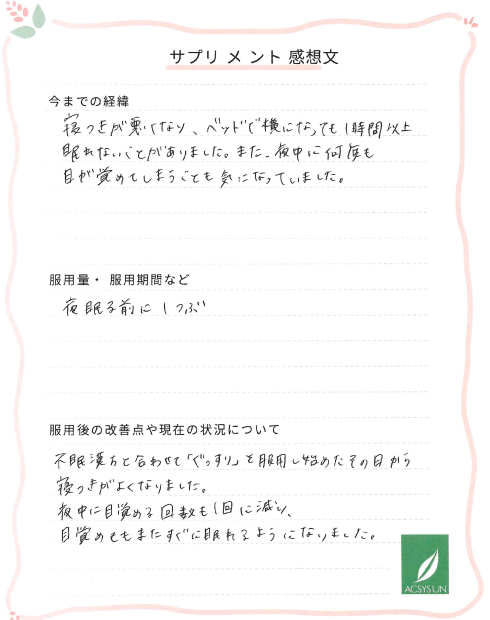 サプリメント感想文
今までの経緯
寝つきが悪くなり、ベッドで横になっても1時間以上
眠れないことがありました。また、夜中に何度も
目が覚めてしまうことも気になっていました。
服用量・服用期間など
夜眠る前に1つぶ
服用後の改善点や現在の状況について
不眠漢方と合わせて「ぐっすり」を服用し始めたその日から
寝つきがよくなりました。
夜中に目覚める回数も1回に減り、
目覚めてもまたすぐに眠れるようになりました。
ACSYSUN